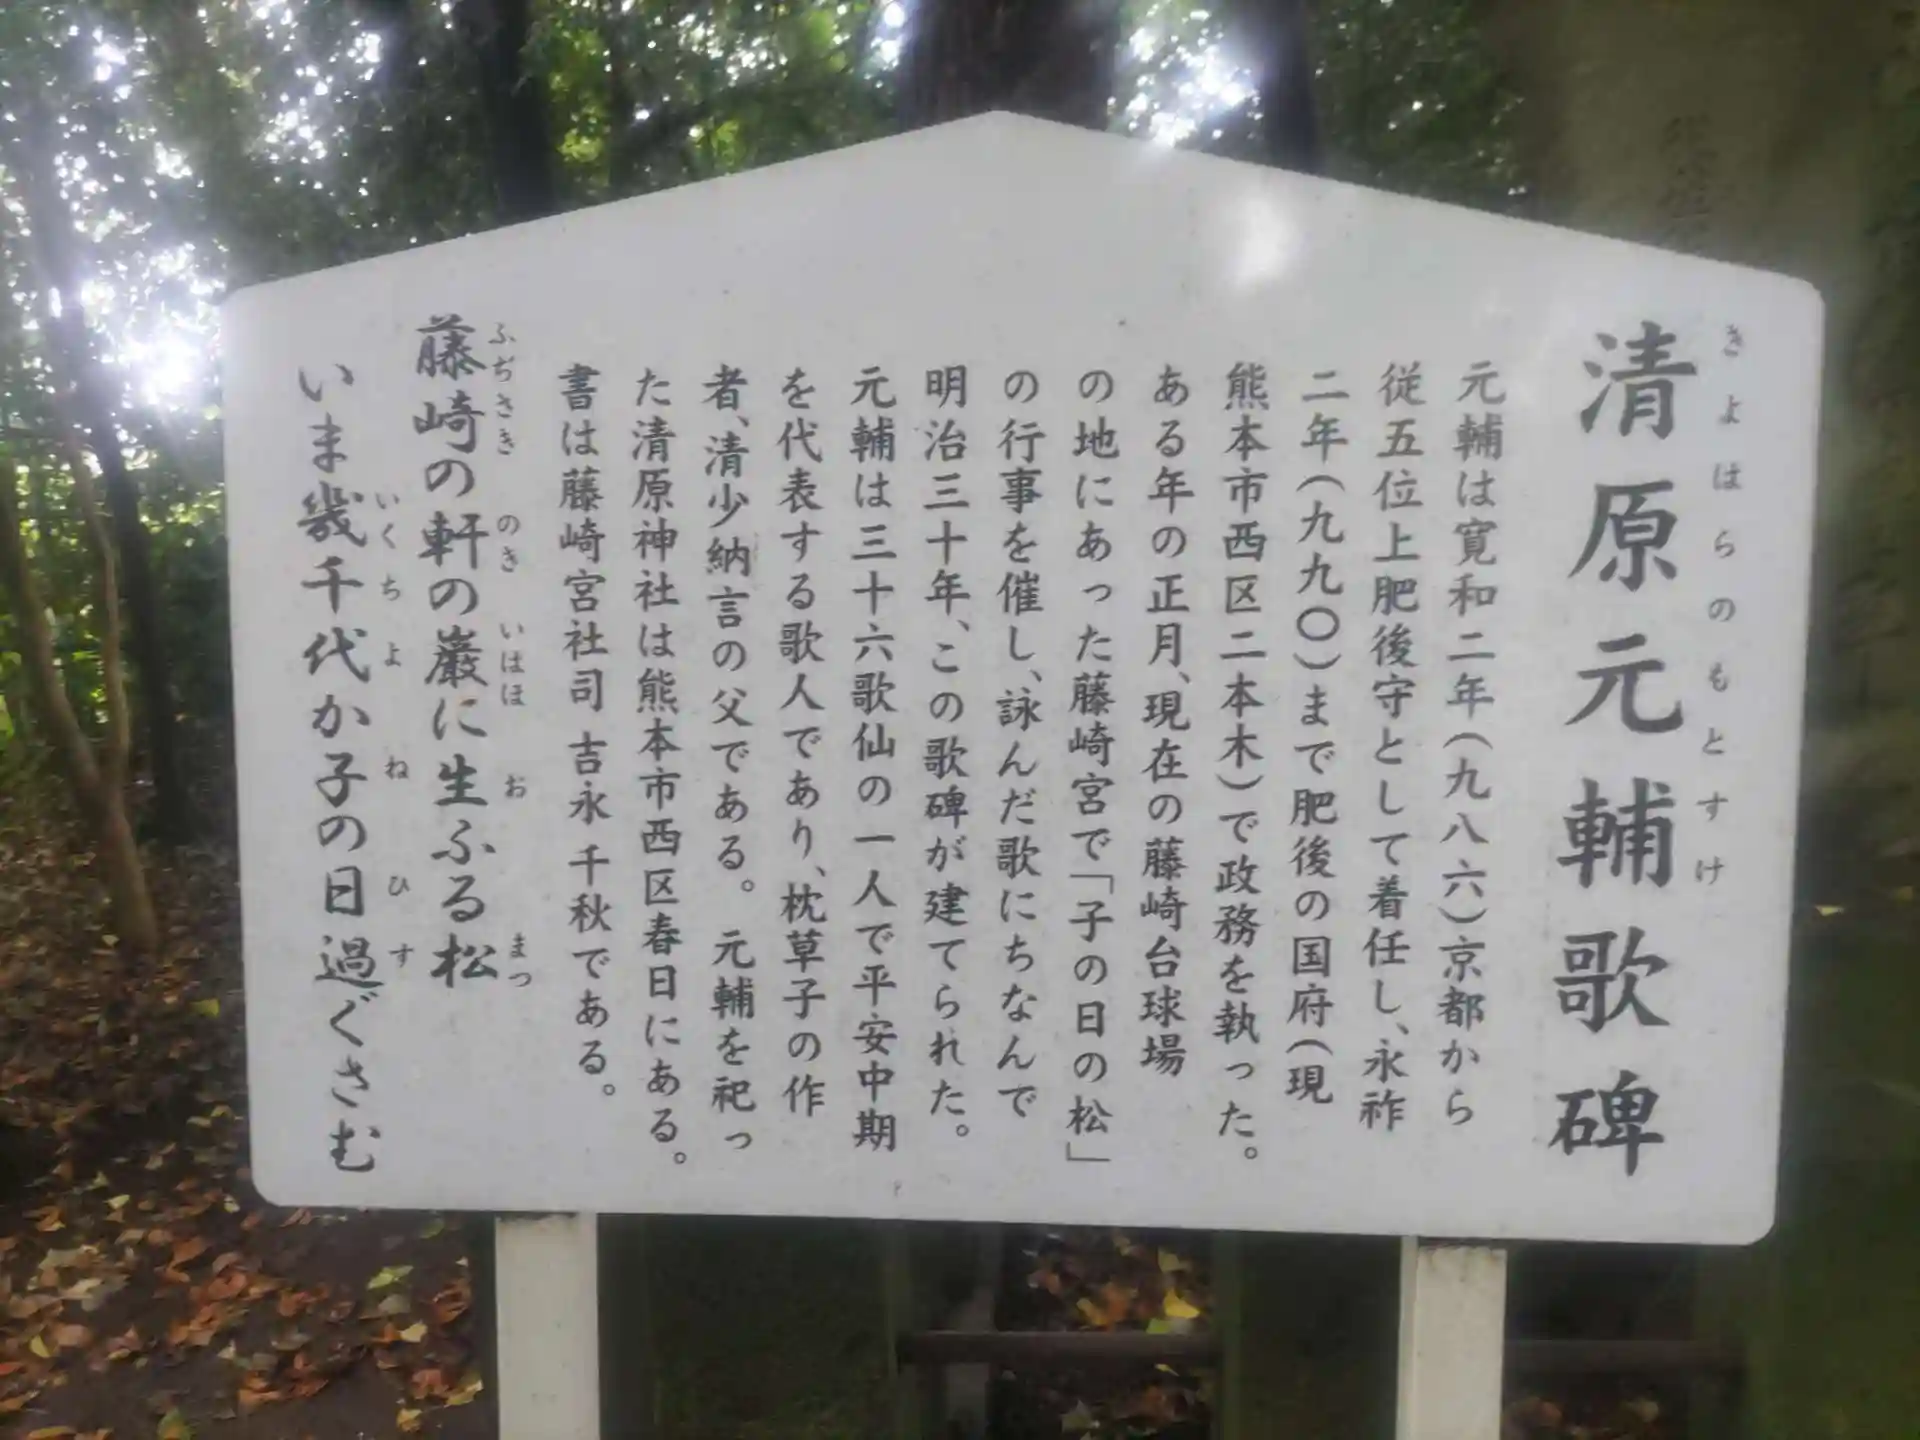 清原元輔歌碑
きよはらのもとすけ
元輔は寛和二年(九八六)京都から
従五位上肥後守として着任し、永祚
二年(九九〇)まで肥後の国府(現
熊本市西区二本木)で政務を執った。
ある年の正月、現在の藤崎台球場
の地にあった藤崎宮で「子の日の松」
の行事を催し、詠んだ歌にちなんで
明治三十年、この歌碑が建てられた。
元輔は三十六歌仙の一人で平安中期
を代表する歌人であり、枕草子の作
者、清少納言の父である。 元輔を祀っ
た清原神社は熊本市西区春日にある。
書は藤崎宮社司 吉永 千秋である。
藤崎の軒の巌に生ふる松
ふぢさき のき いはほ お まつ
いま幾千代か子の日過ぐさむ
いくちよ ね ひ す